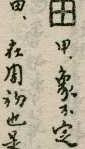 田甲、象不定
田、在周初也是